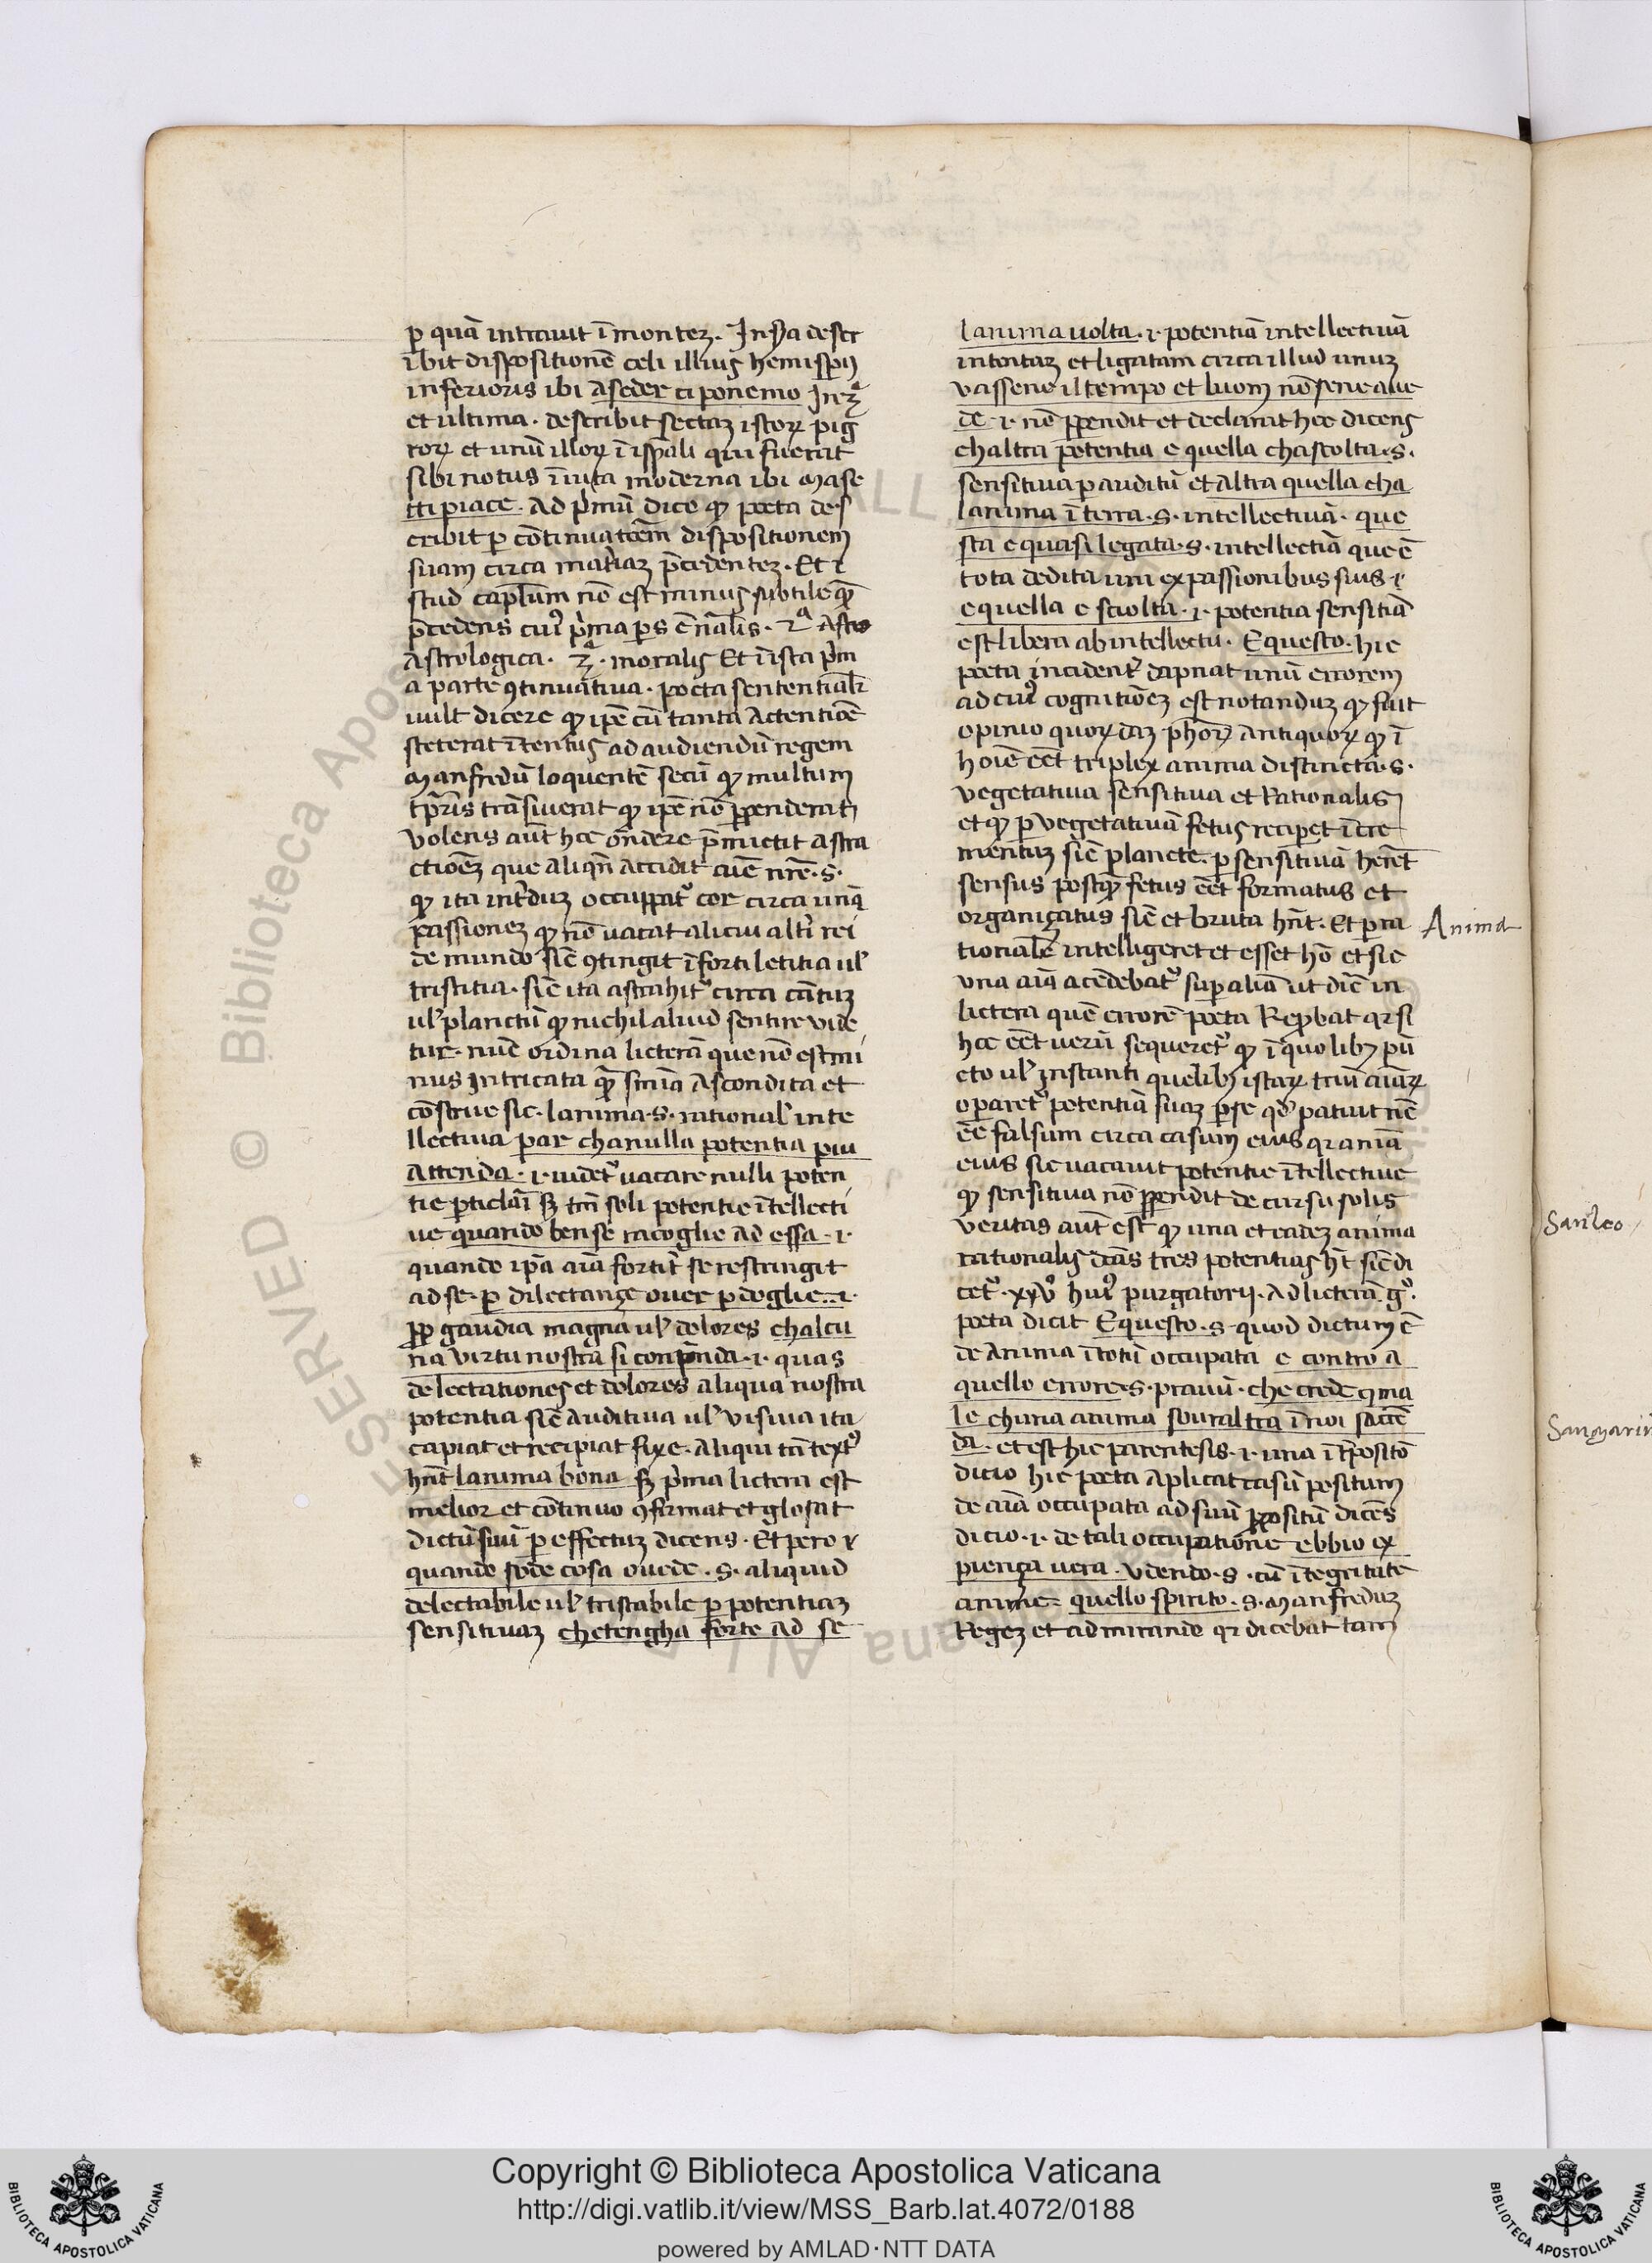 ꝑ quā intrauit ī montez. In 2ᵃ descr
ibit dispositionē celi illius hemisperij
inferioris ibi a seder ci ponemo In 3ᵃ
et ultima. describit sectaz istoꝝ pig
roꝝ et unū illoꝝ ī isp̄ali qui fuerat
sibi notus ī uita moderna ibi Ma se
tti piace. Ad p̄mū dico qꝫ poeta des
cribit ꝑ cōtinuatōem dispositionem
suam circa mat̄iaz p̄cedentez. Et i
stud cap̄lum nō est minus subtile qꝫ
p̄cedens cuiꝰ p̄ma pars ē nālis. 2ᵃ Astro
Astrologica. 3ᵃ. moralis Et ī ista p̄m
a parte ꝯtinuatiua. poeta sententialr̄
uult dicere qꝫ ip̄e cū tanta actentiōe
steterat ītentus ad audiendū regem
Manfredū loquentē secū qꝫ multum
tp̄ris trāsiuerat qꝫ ip̄e nō ꝑpenderat
volens aūt hoc on̄dere p̄mictit astra
ctiōez que aliqn̄ accidit aīe nr̄e. s.
qꝫ ita int̄duz occuppatꝰ cor circa unā
passionez qꝫ nō uacat alicui alt̄i rei
de mundo sic̄ ꝯtingit ī forti letitia ul̄
tristitia. sic̄ ita astrahitꝰ circa cātuz
ul̄ planctū qꝫ nichil aliud sentire vide
tur. nūc ordina licterā que nō est mi
nus intricata qꝫ sn̄ia ascondita et
cōstrue sic. lanima. s. rational̄ inte
llectiua par cha nulla potentia piu
attenda. i. uidetꝰ uacare nulli poten
tie ꝑticlāi sꝫ tm̄ soli potentie ītellecti
ue quando ben se racoglie ad essa. i.
quando ip̄a aīa fortit̄ se restringit
ad se. ꝑ dilectançe ouer ꝑ doglie. i.
ꝓp gaudia magna ul̄ dolores chalcu
na virtu nostra si conp̄nda. i. quas
delectationes et dolores aliqua nostra
potentia sic̄ auditiua ul̄ visiua ita
capiat et recipiat fixe. Aliqui tn̄ textꝰ
hn̄t lanima bona sꝫ p̄ma lictera est
melior et cōtinuo ꝯfirmat et glosat
dictū suū ꝑ effectuz dicens. Et pero
quando sode cosa o uede. s. aliquid
delectabile ul̄ tristabile ꝑ potentiaz
sensitiuaz che tengha forte ad se
lanima uolta. i. potentiā intellectiuā
intentaz et ligatam circa illud unuz
vassene il tempo et luom nō sene aue
de. i. nō ꝑpendit et declarat hoc dicens
chaltra potentia e quella chascolta. s.
sensitiua ꝑ auditū et altra quella cha
lanima ī terra. s. intellectiuā. que
sta e quasi legata. s. intellectiā que ē
tota dedita uni ex passionibus suis. i.
e quella e sciolta. i. potentia sensitiā
est libera ab intellectu. E questo. hic
poeta incident̄ dapnat unū errorem
ad cuiꝰ cognitiōez est notanduz qꝫ fuit
opinio quoꝝdaz ph̄oꝝ antiquoꝝ qꝫ ī
hoīe eēt triplex anima distincta. s.
vegetatiua sensitiua et Rationalis
et qꝫ ꝑ vegetatiuā fetus reciperet īcre
mentuz sic̄ plancte. ꝑ sensitiuā heret̄
sensus postqꝫ fetus eēt formatus et
organiçatus sic̄ et bruta hn̄t. Et ꝑ ra
tionalē intelligeret et esset hō et sic
una aīa acēdebatꝰ suꝑ aliā ut dic̄ in
lictera quē errorē poeta Reꝓbat qr si
hoc eēt uerū sequeretꝰ qꝫ ī quolibꝫ pū
cto ul̄ instanti quelibꝫ istaꝝ triū aīaꝝ
oparetꝰ potentiā suaz ꝑ se qđ patuit nc̄
eē falsum circa casum eius qr aniā
eius sic uacauit potentie ītellectiue
qꝫ sensitiua nō ꝑpendit de cursu solis
veritas aūt est qꝫ una et eadez anima
rationalis dc̄as tres potentias ht̄ sic̄ di
cetꝰ. xxv° huiꝰ purgatorij. Ad licterā g°.
poeta dicit E questo. s. quod dictum ē
de anima ī totū occupata e contro a
quello errore. s. prauū. che crede q̄ ma
le chuna anima soura altra ī noi sacce
da. et est hic parentesis. i. una īt̄posito
dicio hic poeta aplicat casū positum
de aīa occupata ad suū ꝓpositū dicēs
dicio. i. de tali occupatione ebbio ex
piença uera. vdendo. s. cū ītegritate
anime. quello spirito. s. Manfreduz
Regez et admirando qr dicebat tam
Anima
Sanleo